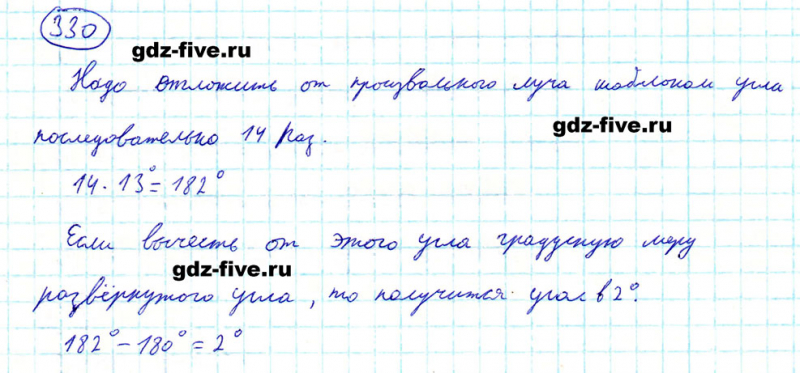 330
gdz-five.ru
Надо отложить от произвольного луча шаблоном угла
последовательно 14 раз.
gdz-five.ru
14 · 13° = 182°
Если вычесть от этого угла градусную меру
gdz-five.ru
развёрнутого угла, то получится угол в 2°.
182° - 180° = 2°